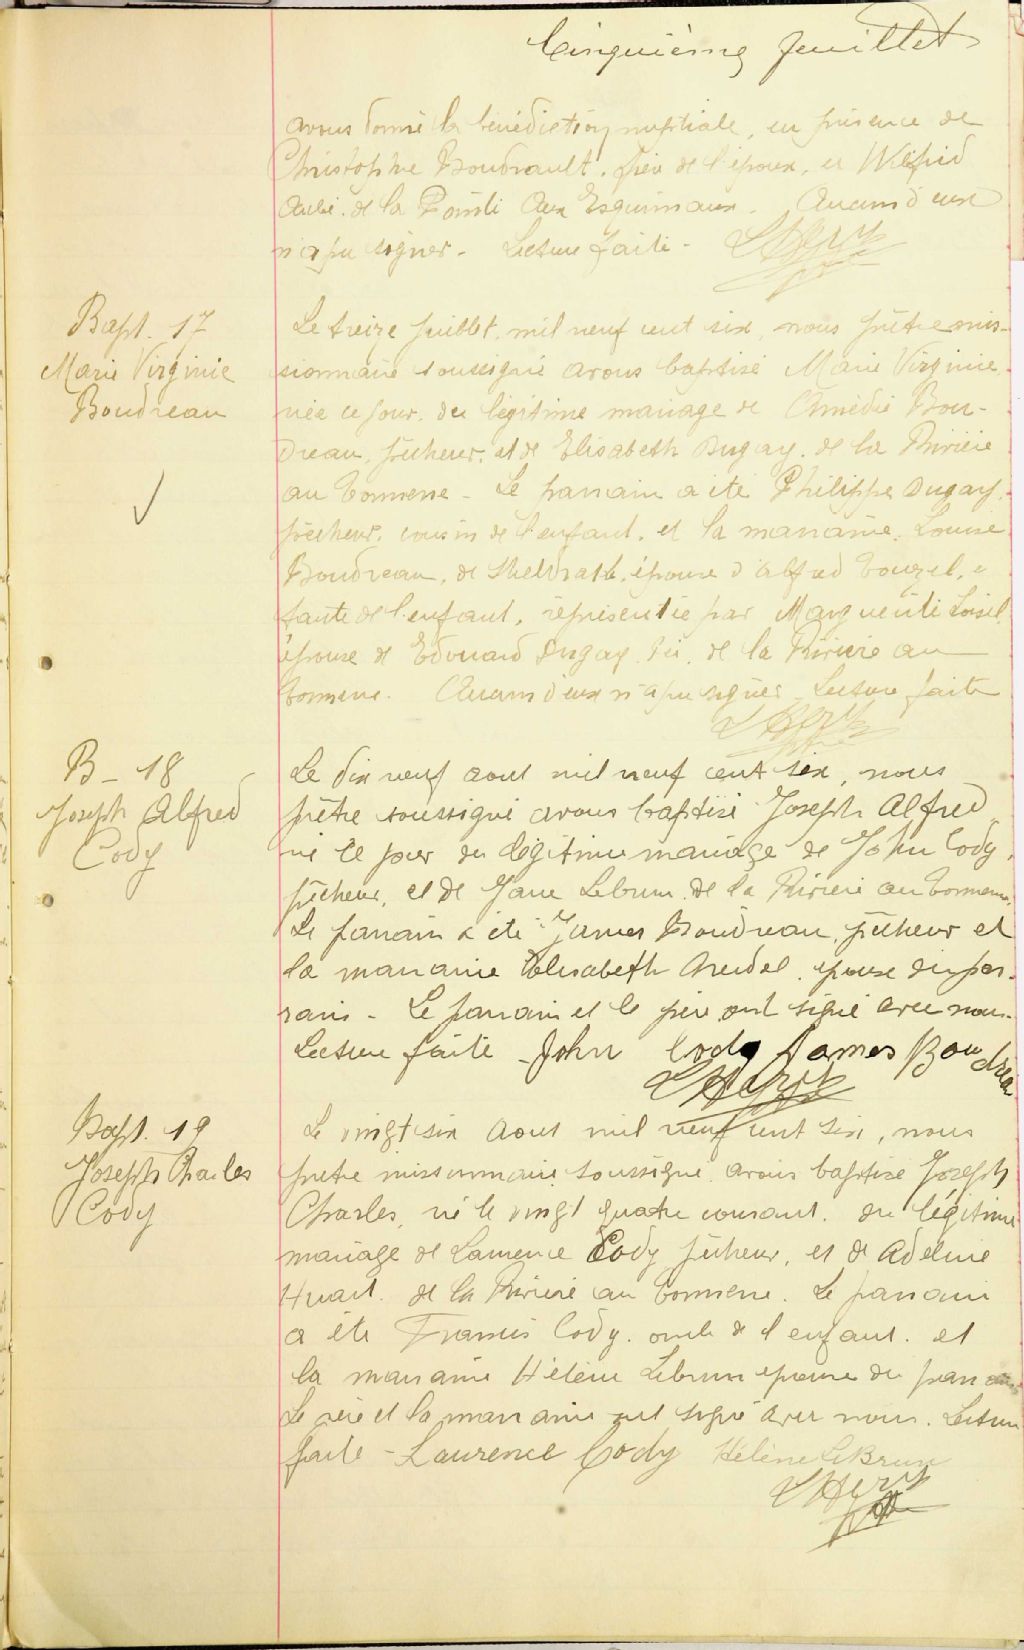 Cinquième feuillet
avons donné la bénédiction nuptiale, en présence de
Christophe Boudrault, père de l'époux, et Wilfrid
de la Pointe Aux Esquimaux. Aucun d'eux
n'a pu signer - Lecture faite -
Bapt. 17
Marie Virginie
Boudreau
Le treize juillet, mil neuf cent six, nous prêtre mis-
sionnaire soussigné avons baptisé Marie Virginie
née ce jour, du légitime mariage de Amédée Bou-
dreau, pêcheur, et de Elisabeth Dugay, de la Rivière
au Tonnerre - Le parrain a été Philippe Dugay,
pêcheur, cousin de l'enfant, et la marraine, Louise
Boudreau, de Sheldrake, épouse d'Alfred Touzel,
tante de l'enfant, représentée par Marguerite Loisel,
épouse de Edouard Dugay, de la Rivière au
Tonnerre. Aucun d'eux n'a pu signer - Lecture faite
B - 18
Joseph Alfred
Cody
Le dix neuf aout mil neuf cent six, nous
prêtre soussigné avons baptisé Joseph Alfred
né le jour du légitime mariage de John Cody,
pêcheur, et de Jane Lebrun de la Rivière au Tonnerre.
Le parrain a été James Boudreau, pêcheur et
la marraine Elisabeth épouse du par-
rain - Le parrain et le père ont signé avec nous.
Lecture faite - John Cody James Boudreau
Bapt. 19
Joseph Charles
Cody
Le vingt six Aout mil neuf cent six, nous
pretre missionnaire soussigné avons baptisé Joseph
Charles, né le vingt quatre courant, du légitime
mariage de Laurence Cody pêcheur, et de Adeline
Huart de la Rivière au Tonnerre. Le parrain
a été Francis Cody, oncle de l'enfant, et
la marraine Hélène Lebrun épouse du parrain
Le père et la marraine ont signé avec nous. Lecture
faite - Laurence Cody Hélène LeBrun